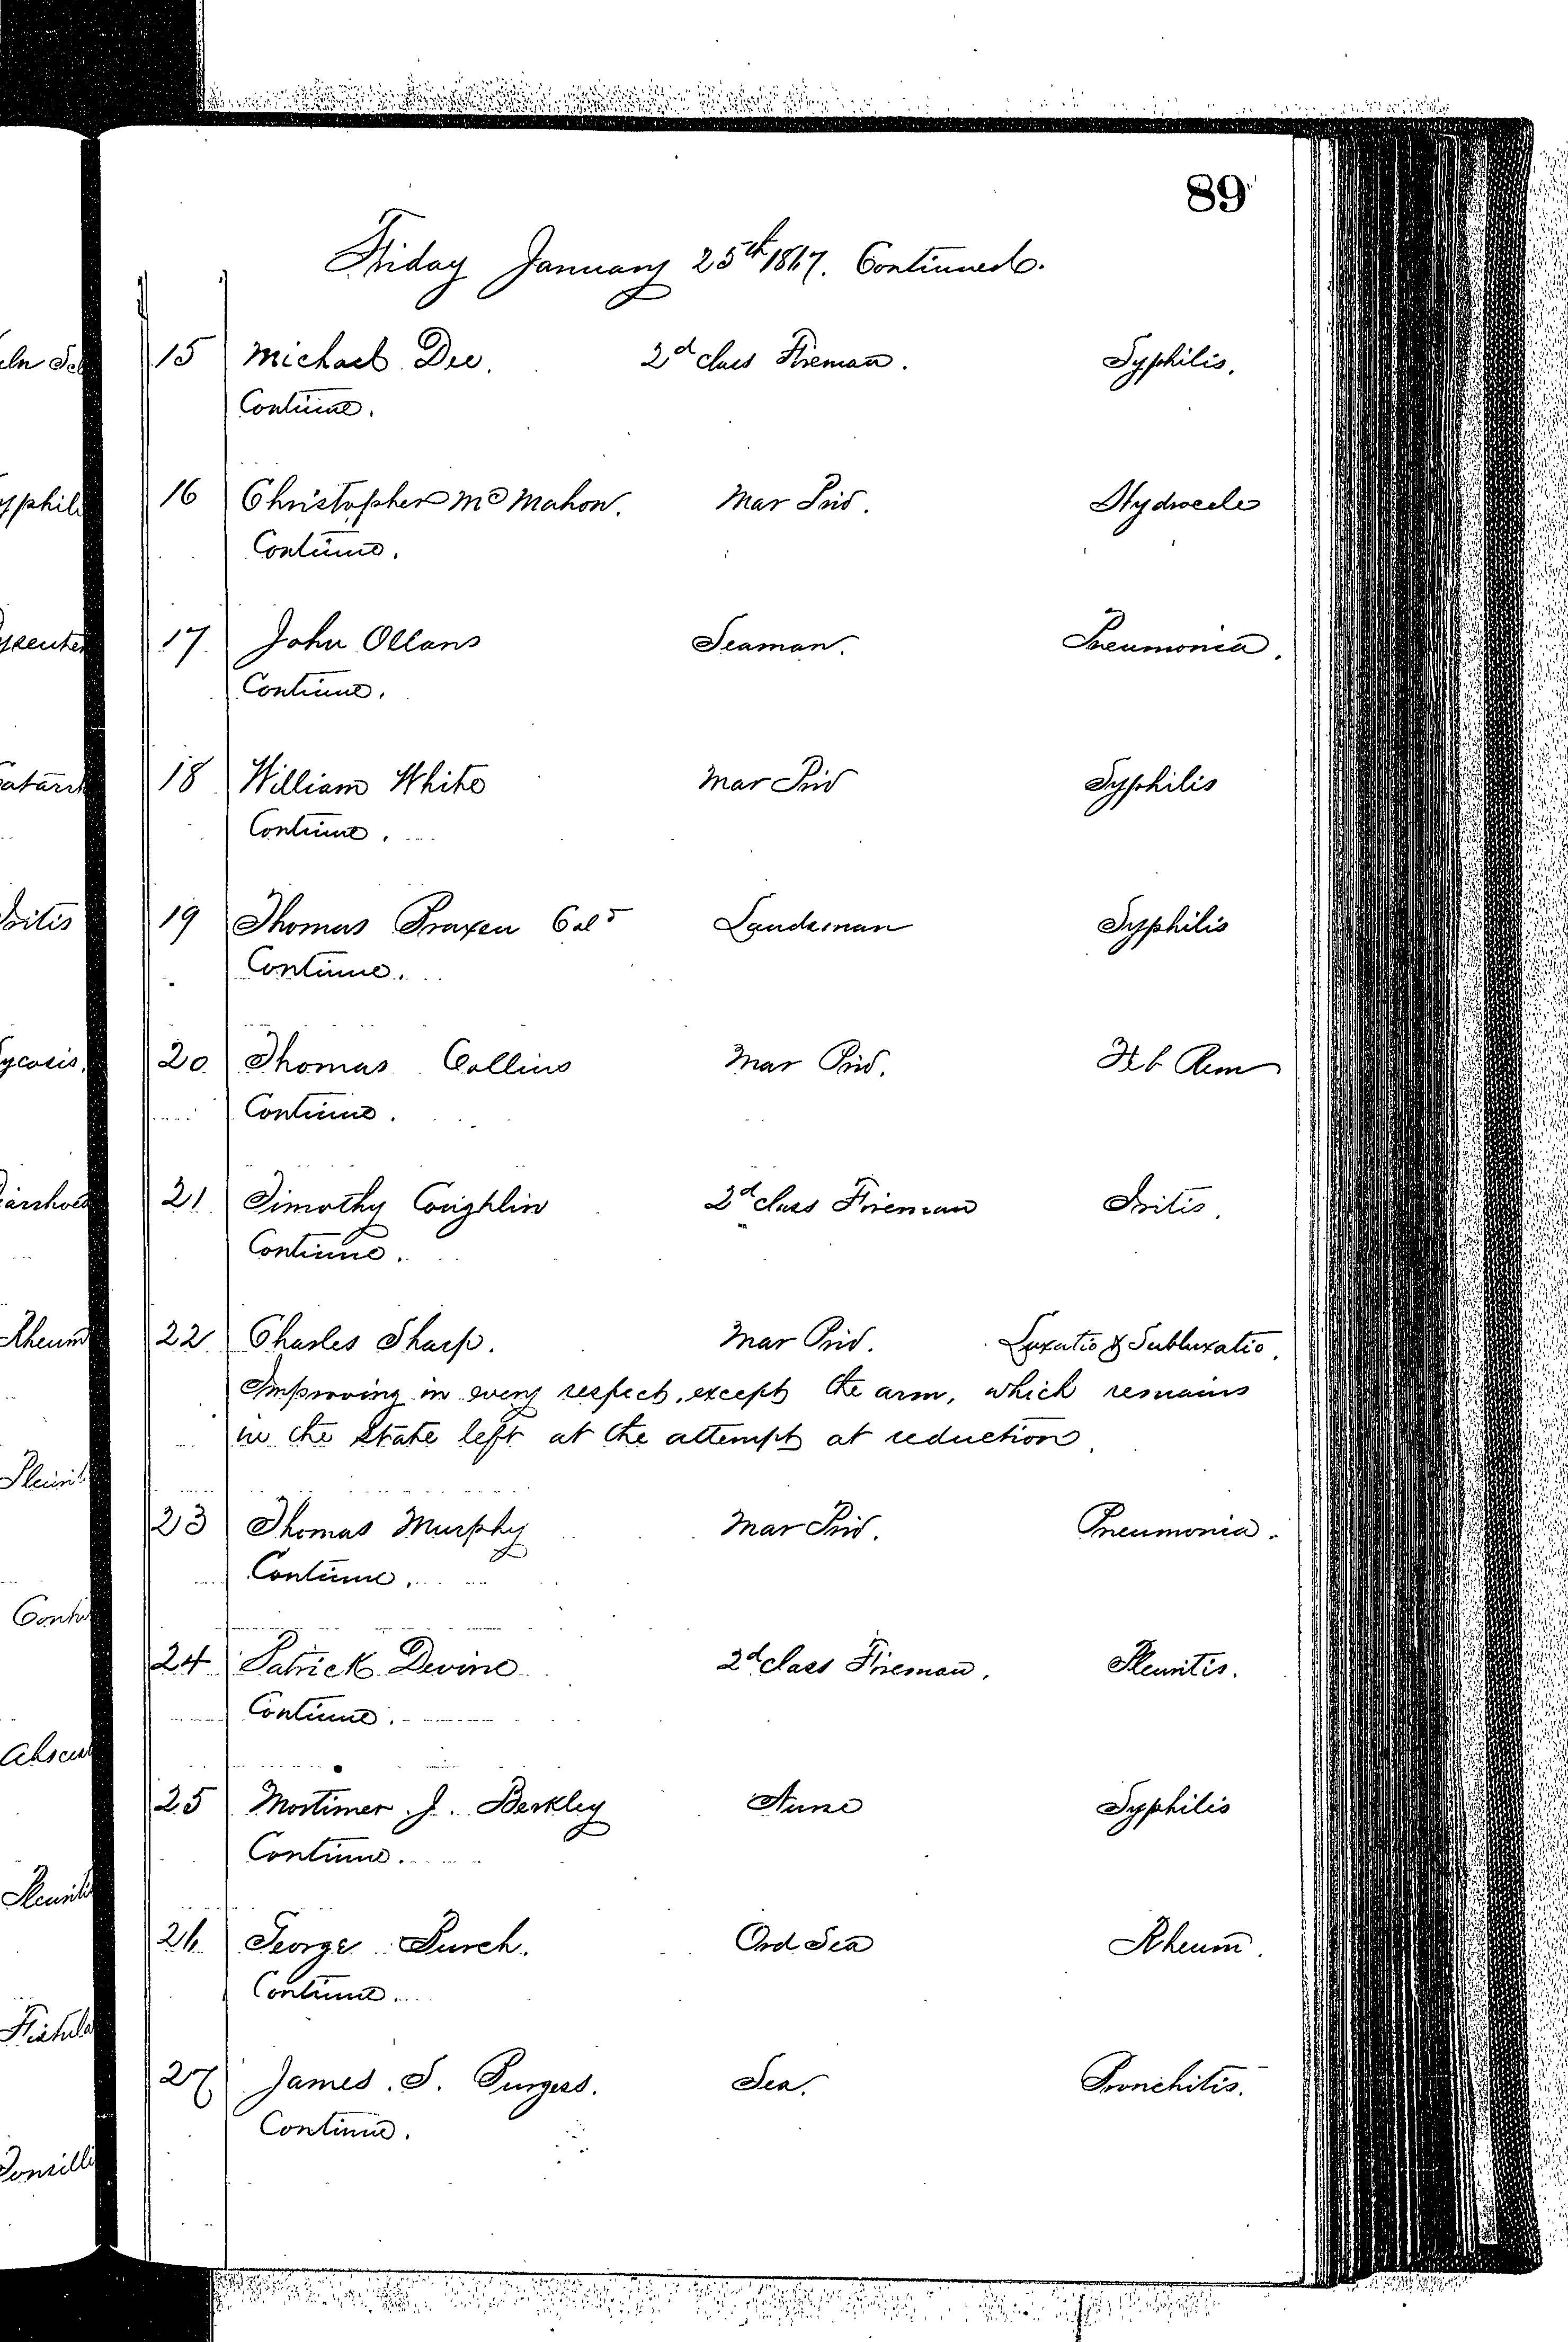 89
Friday January 25th 1867. Continued.
15 Michael Dee. 2d class Fireman. Syphilis.
Continue.
16 Christopher McMahon. Mar Prid. Hydrocele
Continue.
17 John Ollans Seaman. Pneumonia.
Continue.
18 William White Mar Prid Syphilis
Continue.
19 Thomas Braxen Cold Landsman Syphilis
Continue.
20 Thomas Collins Mar Prid. Feb Rem
Continue.
21 Timothy Coughlin 2d class Fireman Iritis.
Continue.
22 Charles Sharp. Mar Prid. Luxatio & Subluxatio.
Improving in every respect, except the arm, which remains
in the state left at the attempt at reduction.
23 Thomas Murphy Mar Prid. Pneumonia.
Continue.
24 Patrick Devine 2d class Fireman. Pleuritis.
Continue.
25 Mortimer J. Berkley Nurse Syphilis
Continue.
26 George Burch. Ord Sea Rheum.
Continue.
27 James. S. Burgess. Sea. Bronchitis.
Continue.